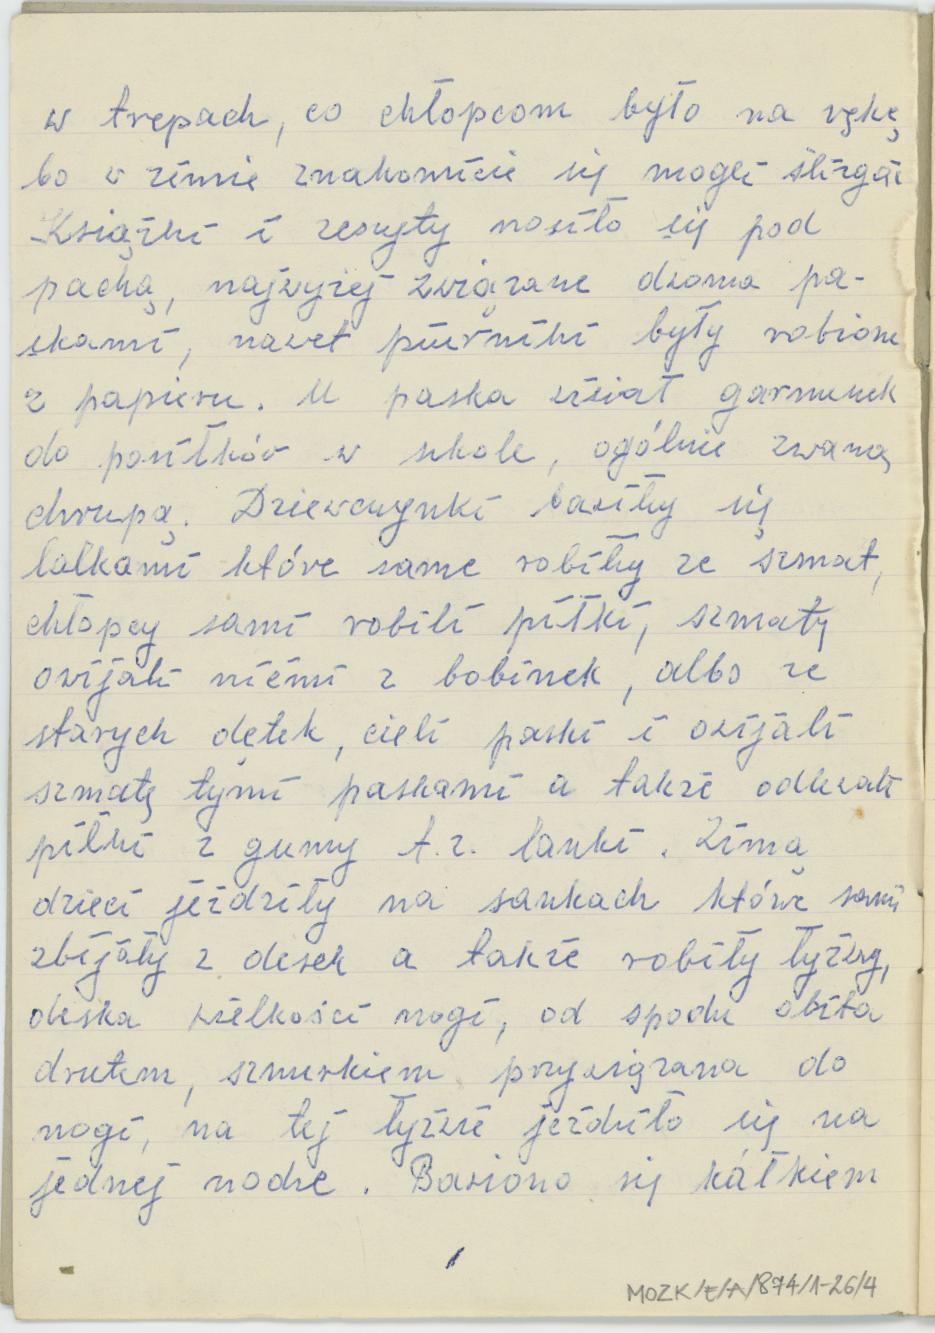 w trepach, co chłopcom było na rękę
bo w zimie znakomicie się mogli ślizgać
Książki i zeszyty nosiło się pod
pachą, najwyżej związane dwoma pa-
skami, nawet piórniki były robione
z papieru. U paska wisiał garnuszek
do posiłków w szkole, ogólnie zwaną
chrupą. Dziewczynki bawiły się
lalkami które same robiły ze szmat,
chłopcy sami robili piłki, szmaty
owijali nićmi z bobinek, albo ze
starych dętek, cieli paski i owijali
szmatę tymi paskami a także odlewali
piłki z gumy t.z. lanki. Zimą
dzieci jeździły na sankach które sami
zbijały z desek a także robiły łyżwy,
deska wielkości nogi, od spodu obita
drutem, sznurkiem przywiązana do
nogi, na tej łyżwie jeździło się na
jednej nodze. Bawiono się kółkiem
1
MOZK/Ł/A/874/1-26/4